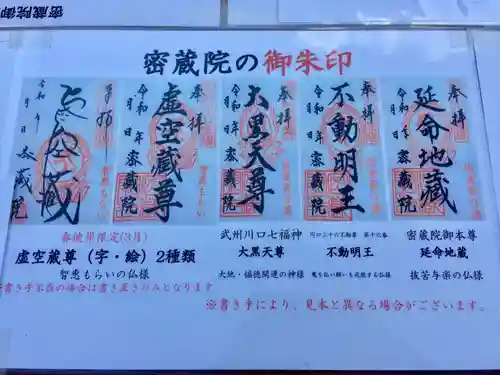 密蔵院の御朱印
奉拝
延命地蔵
令和 年 月 日
密蔵院
奉拝
不動明王
令和 年 月 日
密蔵院
奉拝
大黒天尊
令和 年 月 日
密蔵院
奉拝
虚空蔵尊
令和 年 月 日
密蔵院
令和 年 月 日
春彼岸限定(3月)
虚空蔵尊(字・絵)2種類
智恵もらいの仏様
武州川口七福神
大黒天尊
大地・福徳開運の神様
川口三十六不動尊 第十六番
不動明王
密蔵院御本尊
延命地蔵
抜苦与楽の仏様
書き手不在の場合は書き置きのみとなります
※書き手により、見本と異なる場合がございます。